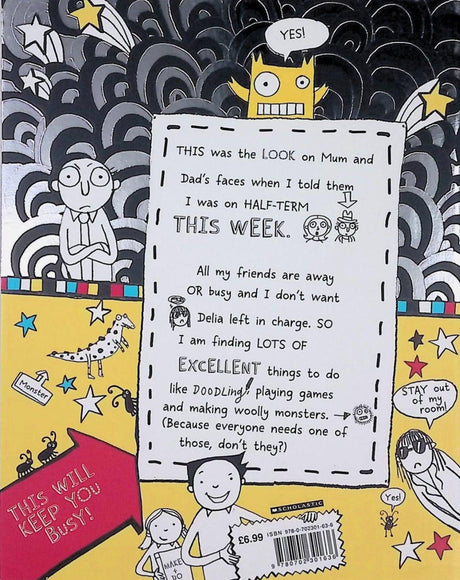 YES!
THIS was the LOOK on Mum and
Dad's faces when I told them
I was on HALF-TERM
THIS WEEK.
All my friends are away
OR busy and I don't want
Delia left in charge. SO
I am finding LOTS OF
EXCELLENT things to do
like DOODLing, playing games
and making woolly monsters.
(Because everyone needs one of
those, don't they?)
Monster
STAY out
of my
room!
Yes!
THIS WILL
KEEP YOU
BUSY!
MAKE
+
DO
SCHOLASTIC
£6.99
ISBN 978-0-702301-63-6
9 780702 301636